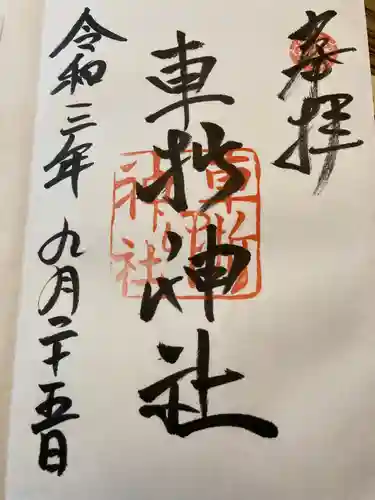 奉拝
車折神社
令和三年九月二十五日